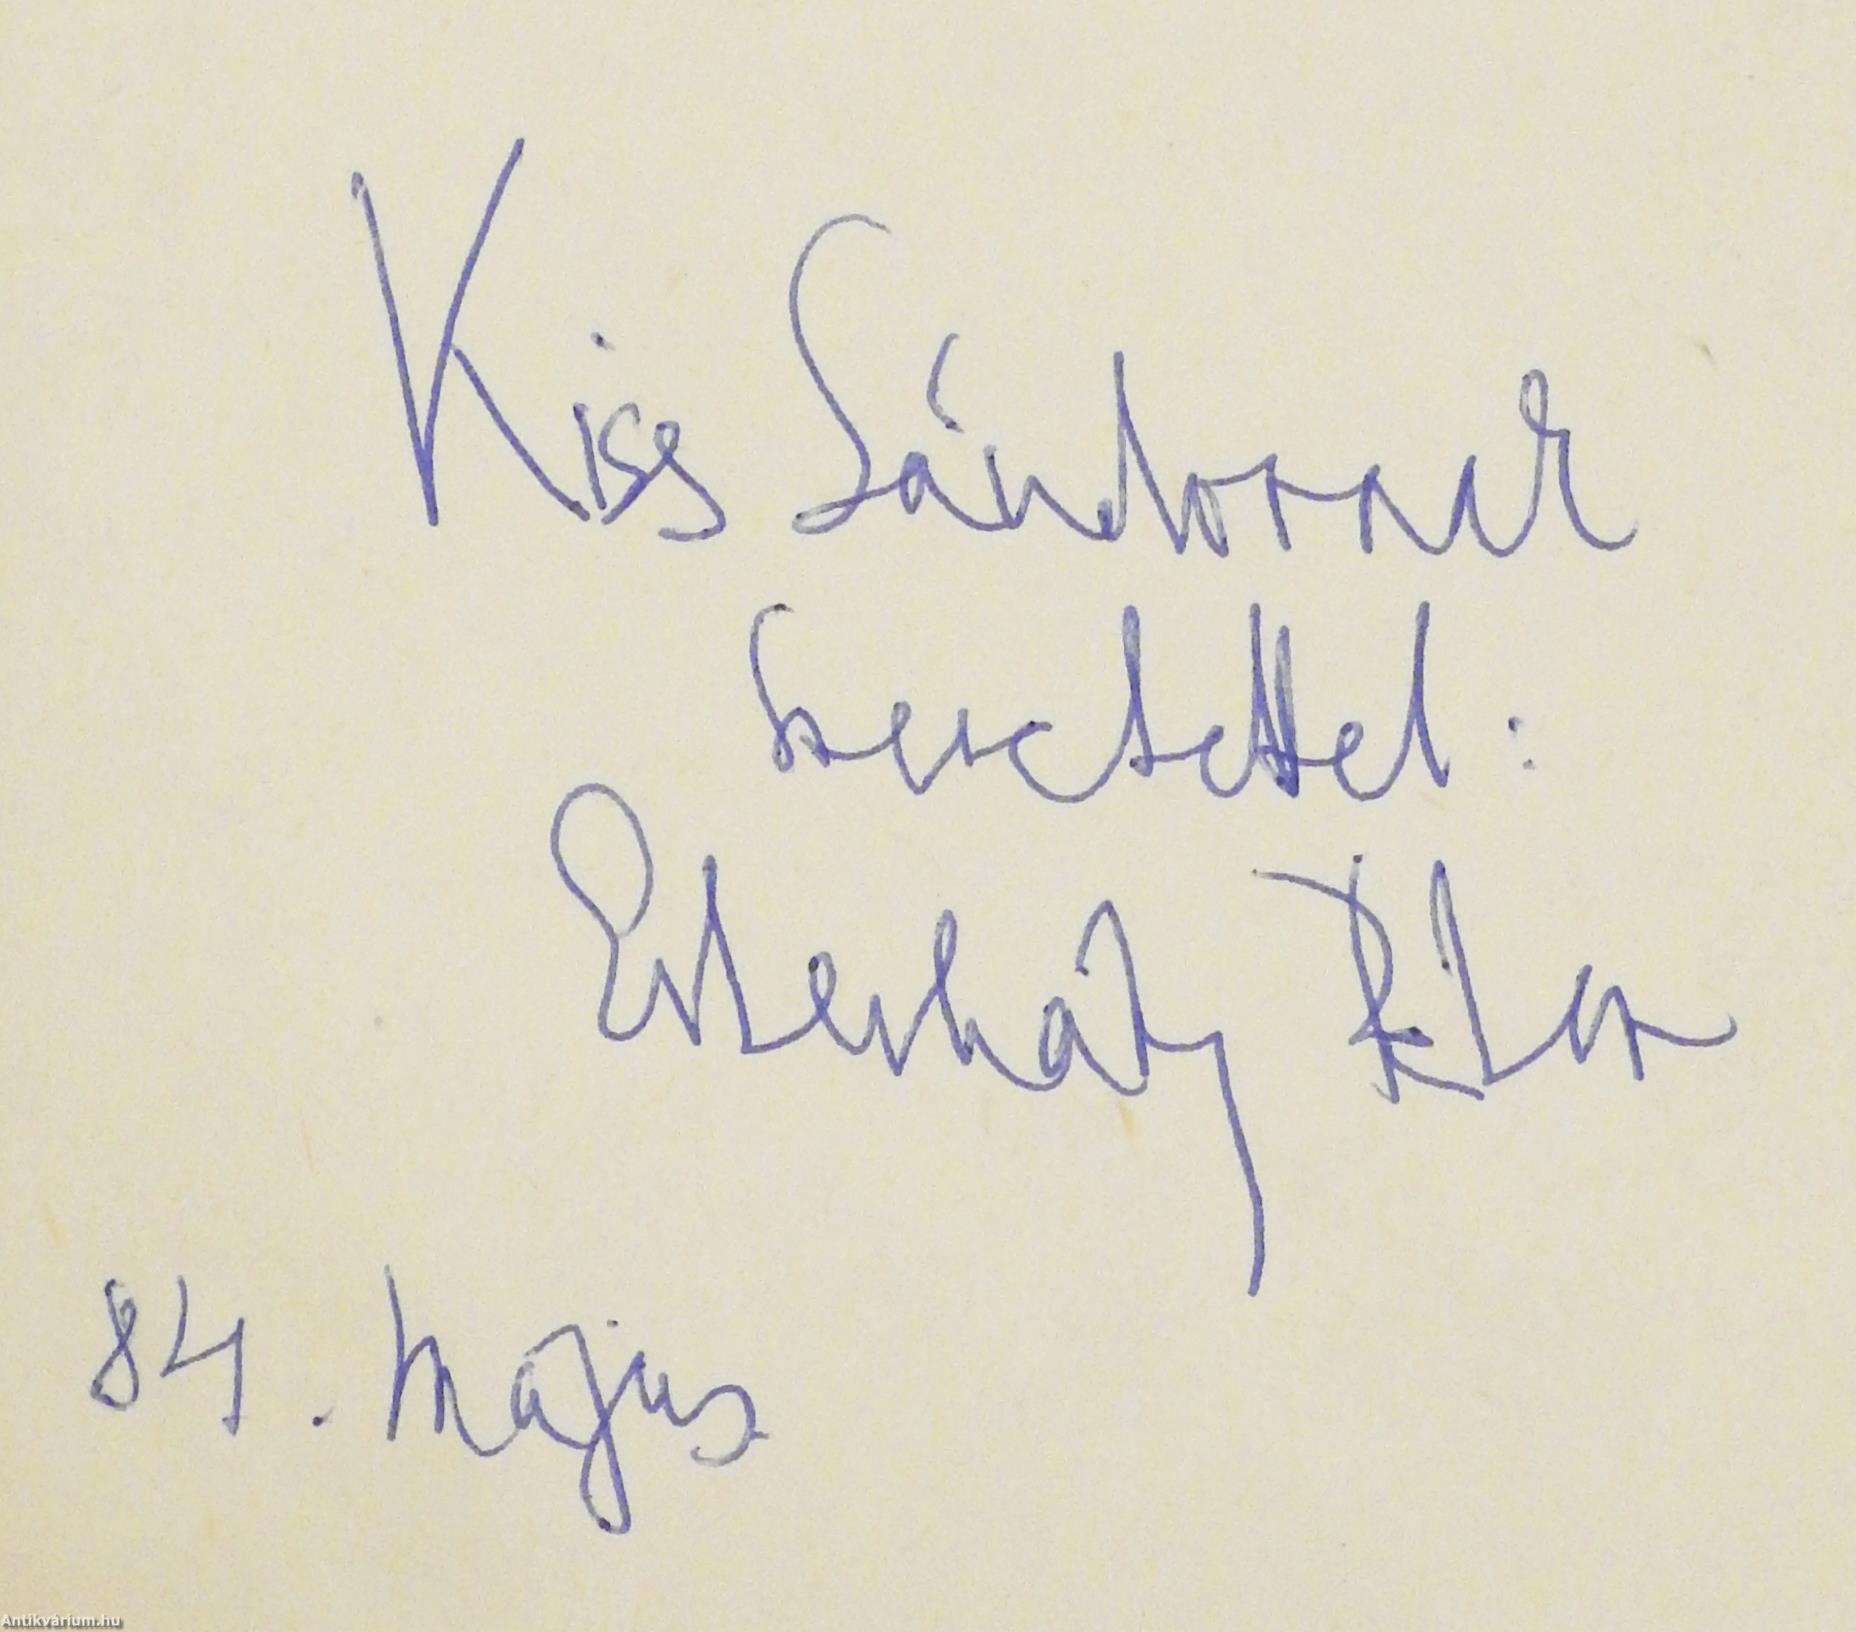 Kiss Sándornak
szeretettel:
Eszterházy Péter
84. május
Antikvárium.hu